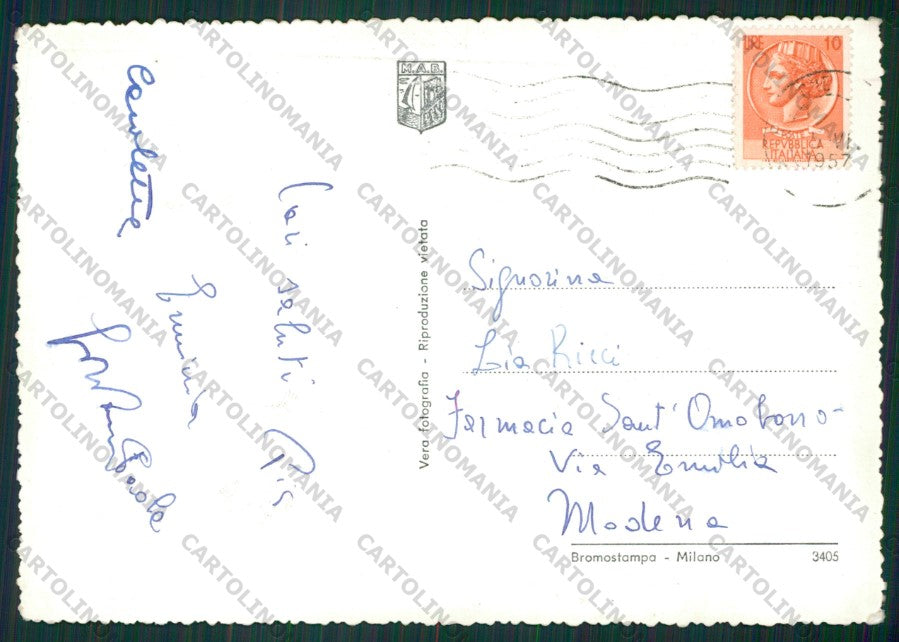 Carletta
Cari saluti
Pia
Erminia
Carla
Vera fotografia - Riproduzione vietata
M.A.B.
LIRE 10
POSTE
REPVBBLICA
ITALIANA
1957
Signorina
Lia Ricci
Farmacia Sant'Omobono
Via Emilia
Modena
Bromostampa - Milano 3405
CARTOLINOMANIA